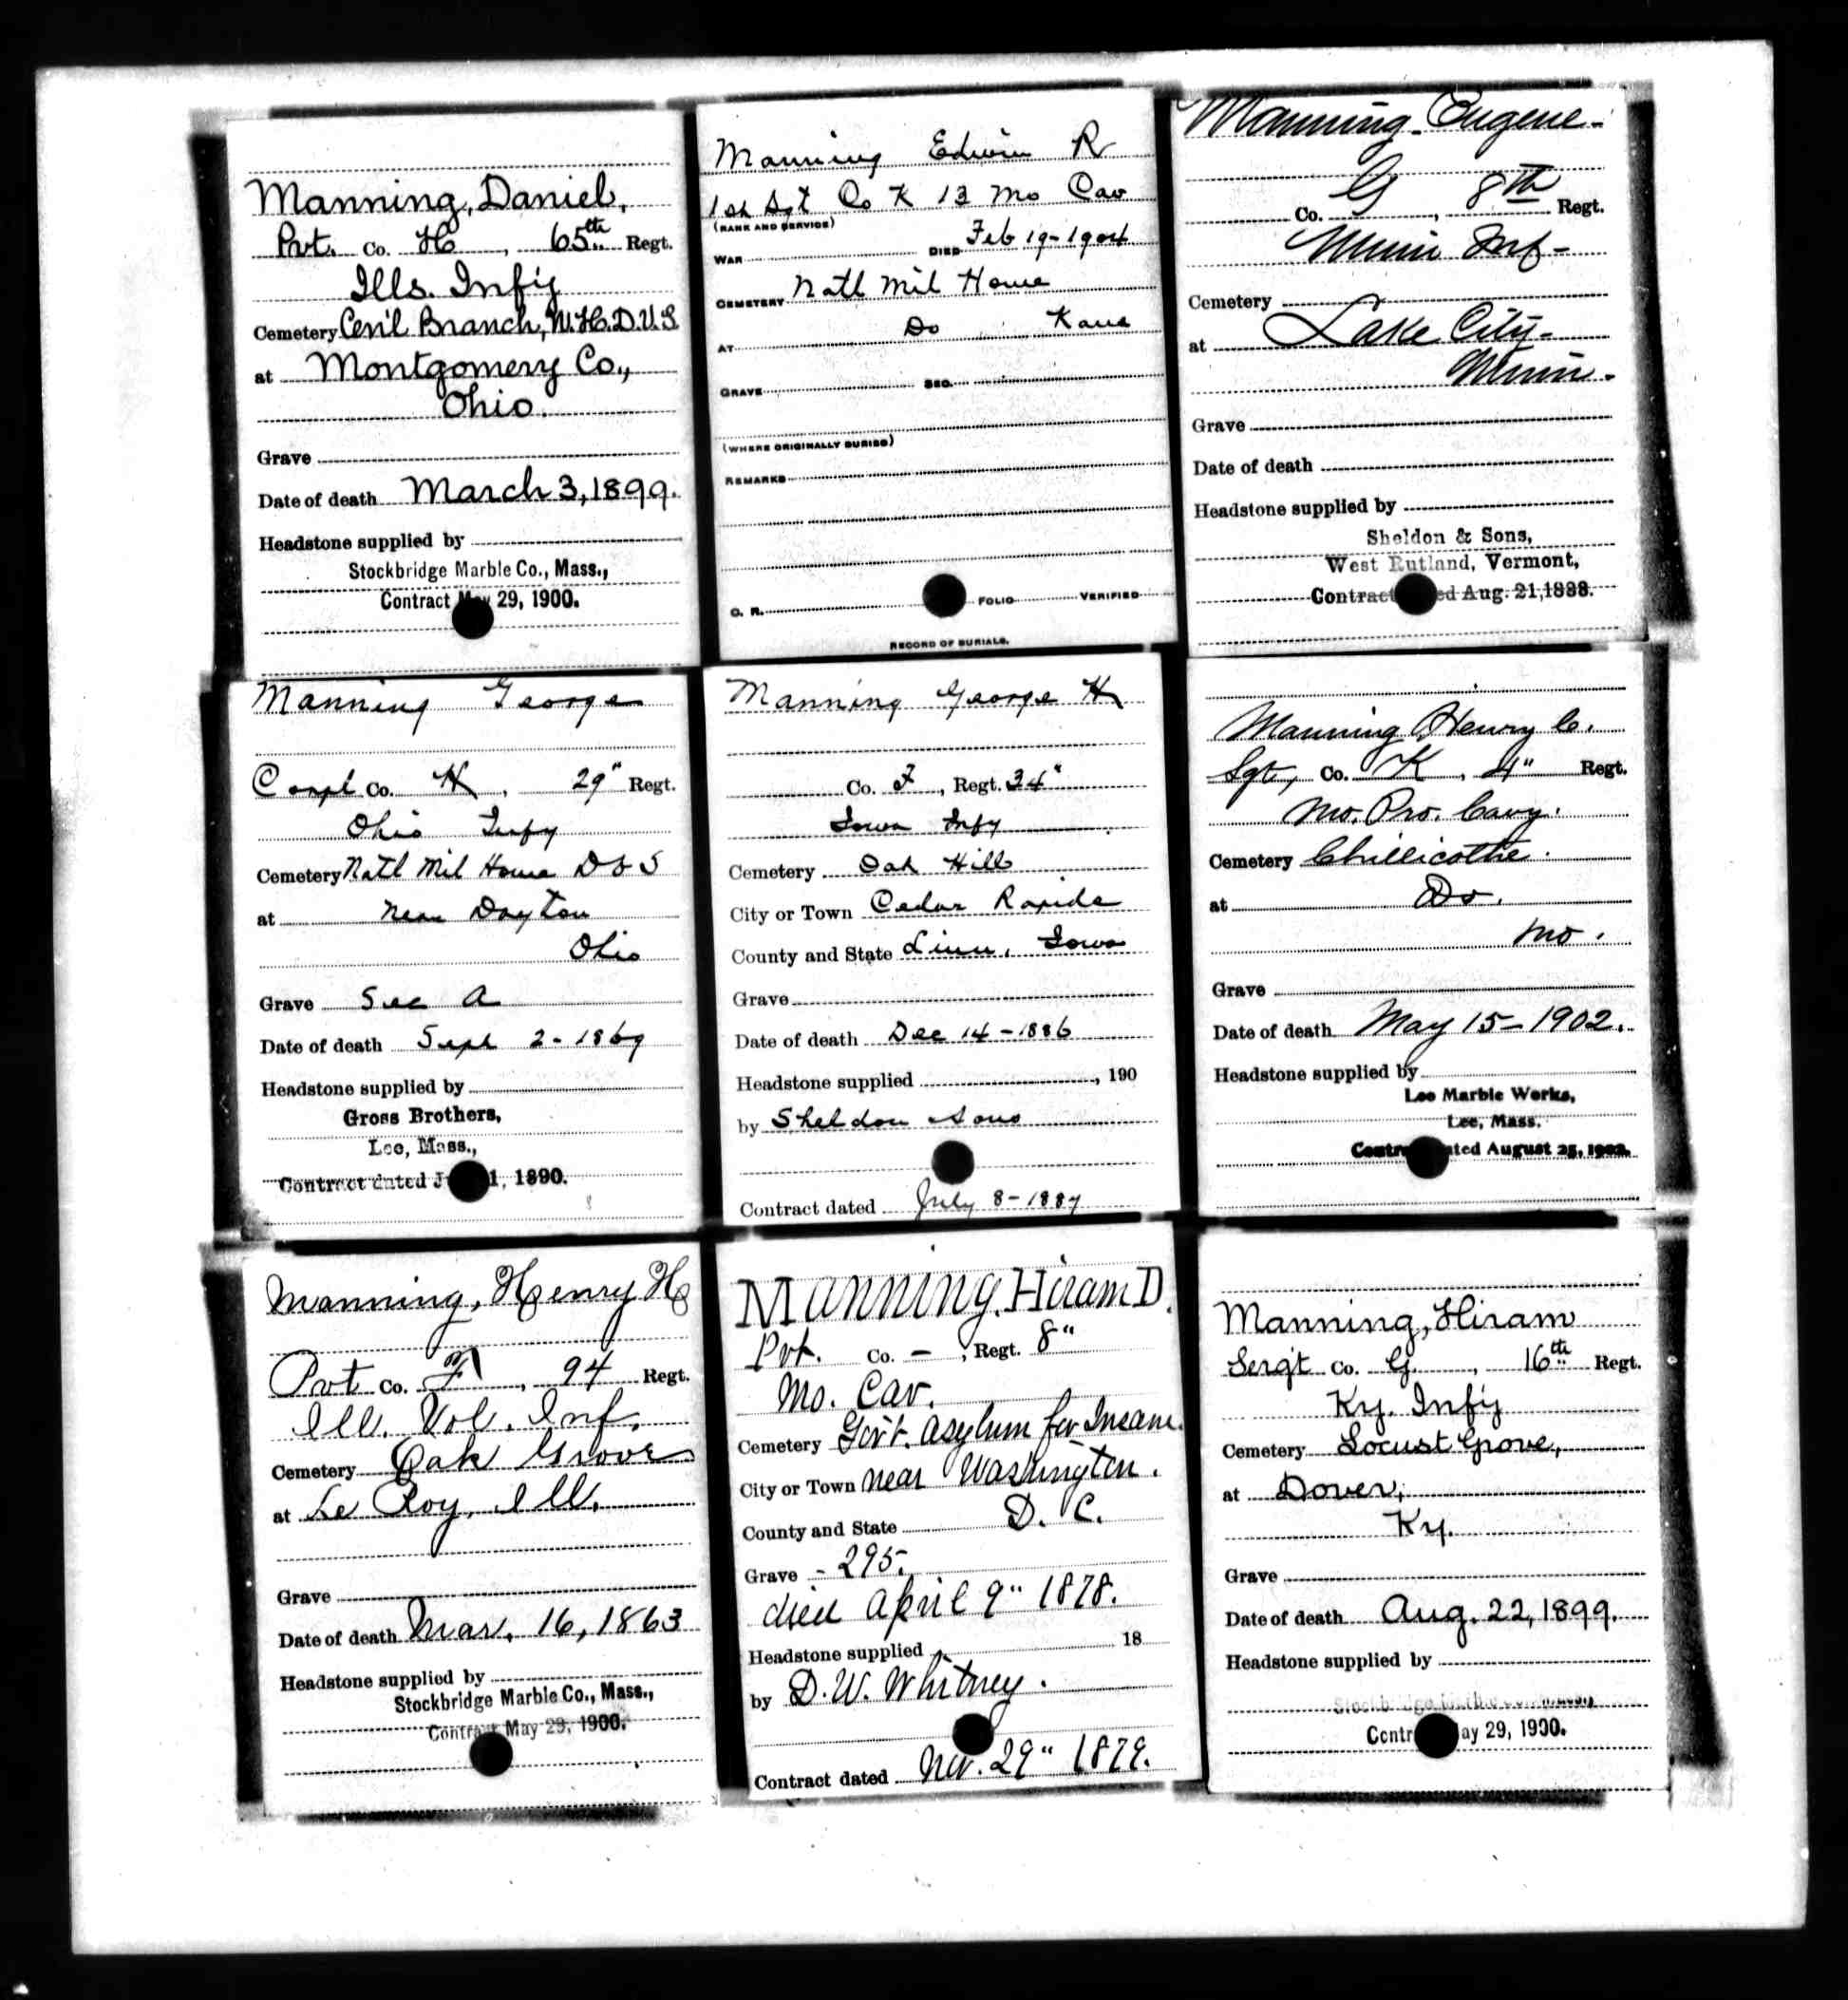 Manning, Daniel,
Pvt. Co. H, 65th Regt.
Ills. Infy
Cemetery Cen'l Branch, N.H.D.V.S.
at Montgomery Co.,
Ohio.
Grave
Date of death March 3, 1899.
Headstone supplied by
Stockbridge Marble Co., Mass.,
Contract May 29, 1900.
Manning Edwin R
1st Sgt Co K 13 Mo Cav
(RANK AND SERVICE)
WAR DIED Feb 19-1904
CEMETERY Natl Mil Home
AT Do Kans
GRAVE SEC.
(WHERE ORIGINALLY BURIED)
REMARKS
O. R. FOLIO VERIFIED
RECORD OF BURIALS.
Manning Eugene-
Co. G, 8th Regt.
Minn Inf-
Cemetery
at Lake City-
Minn.
Grave
Date of death
Headstone supplied by
Sheldon & Sons,
West Rutland, Vermont,
Contract ed Aug. 21, 1888.
Manning George
Corpl Co. H, 29" Regt.
Ohio Infy
Cemetery Natl Mil Home D V S
at near Dayton
Ohio
Grave Sec A
Date of death Sept 2-1869
Headstone supplied by
Gross Brothers,
Lee, Mass.,
Contract dated J 1, 1890.
Manning George H
Co. F, Regt. 34"
Iowa Infy
Cemetery Oak Hill
City or Town Cedar Rapids
County and State Linn, Iowa
Grave
Date of death Dec 14-1886
Headstone supplied , 190
by Sheldon & Sons
Contract dated July 8-1887
Manning Henry C.
Sgt, Co. K, 4" Regt.
Mo. Pro. Cavy.
Cemetery Chillicothe.
at Do.
Mo.
Grave
Date of death May 15-1902.
Headstone supplied by
Lee Marble Works,
Lee, Mass.
Contr ated August 25, 1902.
Manning, Henry H
Pvt Co. F, 94 Regt.
Ill. Vol. Inf.
Cemetery Oak Grove
at Le Roy, Ill.
Grave
Date of death Mar. 16, 1863
Headstone supplied by
Stockbridge Marble Co., Mass.,
Contract May 29, 1900.
Manning, Hiram D.
Pvt. Co. -, Regt. 8"
Mo. Cav.
Cemetery Gov't. Asylum for Insane.
City or Town near Washington.
County and State D. C.
Grave - 295.
died April 9" 1878.
Headstone supplied , 18
by D. W. Whitney.
Contract dated Nov. 29" 1879.
Manning, Hiram
Serg't Co. G., 16th Regt.
Ky. Infy
Cemetery Locust Grove,
at Dover,
Ky.
Grave
Date of death Aug. 22, 1899.
Headstone supplied by
Contr ay 29, 1900.